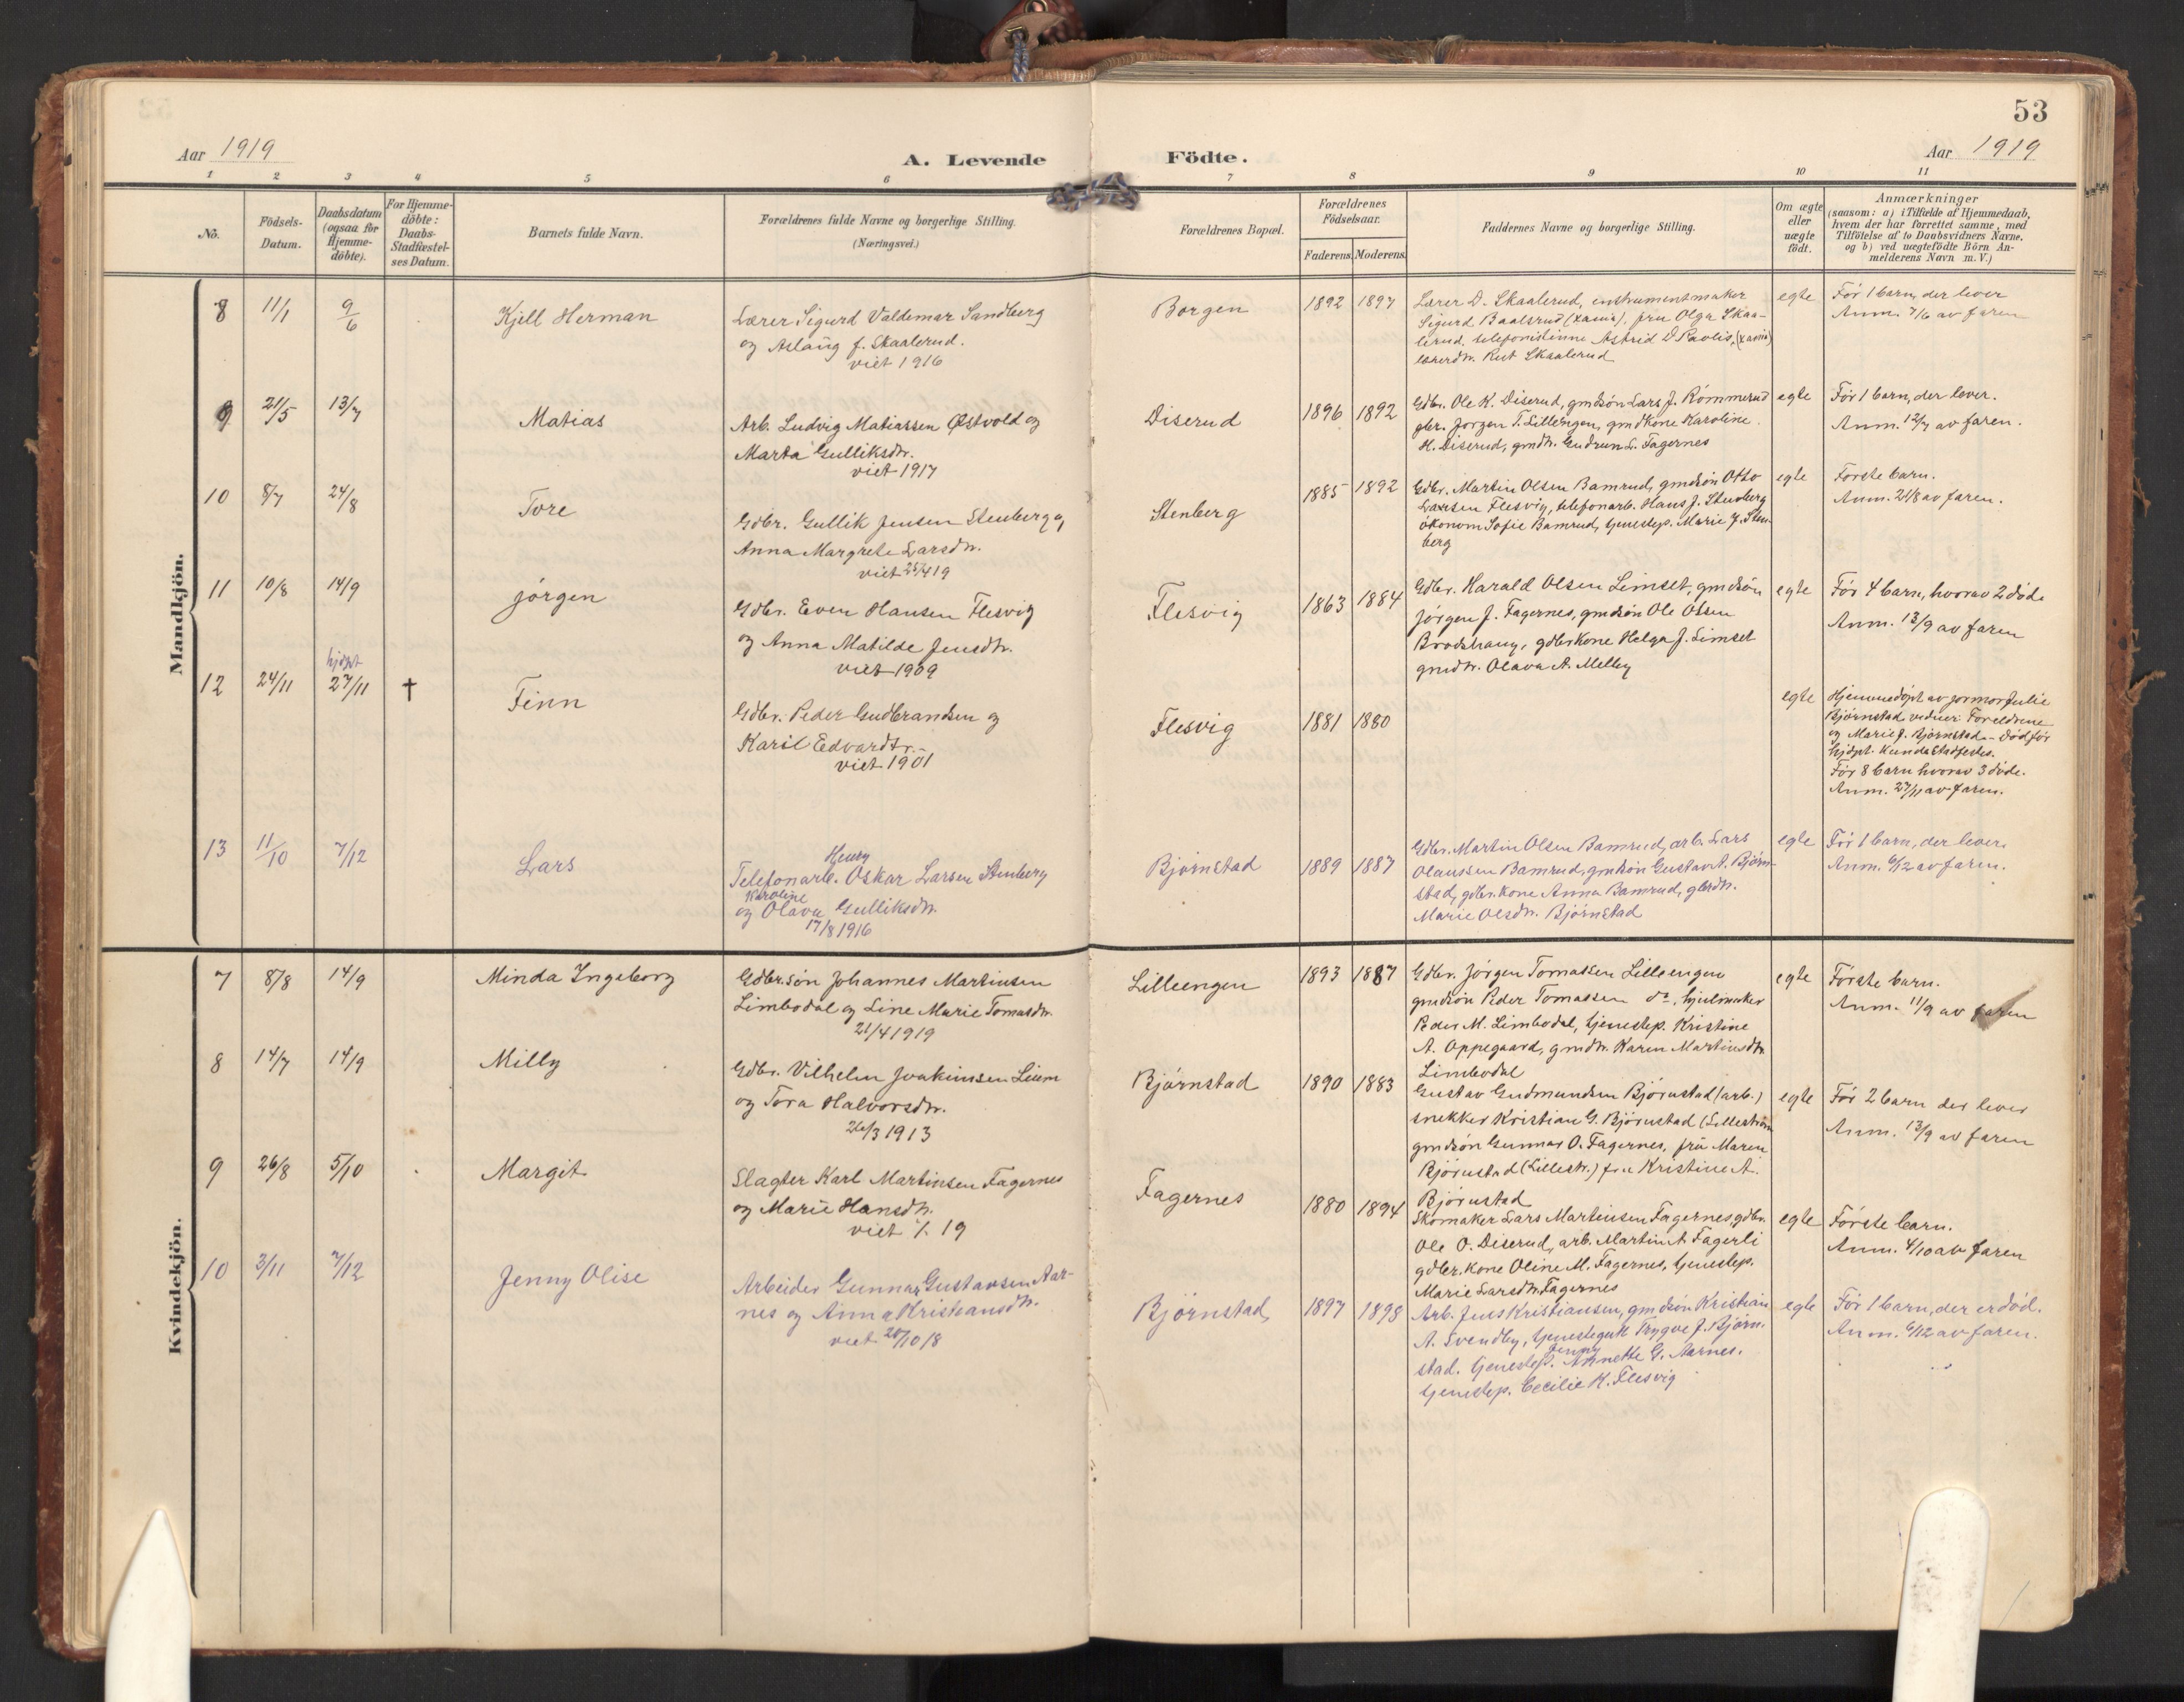 53
Aar 1919
A. Levende Födte.
Aar 1919
1 2 3 4 5 6 7 8 9 10 11
No.
Födsels-
Datum.
Daabsdatum
(ogsaa for
Hjemme-
döbte).
For Hjemme-
döbte:
Daabs-
Stadfæstel-
ses Datum.
Barnets fulde Navn.
Forældrenes fulde Navne og borgerlige Stilling.
(Næringsvei.)
Forældrenes Bopæl.
Forældrenes
Födselsaar.
Faderens. Moderens.
Faddernes Navne og borgerlige Stilling.
Om ægte
eller
uægte
födt.
Anmærkninger
(saasom: a) i Tilfælde af Hjemmedaab,
hvem der har forrettet samme, med
Tilföielse af to Daabsvidners Navne,
og b) ved uægtefödte Börn An-
melderens Navn m. V.)
Mandkjön.
8 11/1 9/6 Kjell Herman
Lærer Sigurd Valdemar Sandberg
og Aslaug f. Skaalerud.
viet 1916
Borgen 1892 1897
Lærer D. Skaalerud, instrumentmaker
Sigurd Baalsrud (xania), fru Olga Skaa-
lerud, telefonistinne Astrid D Ravlis, (xania)
lærerdtr. Rut Skaalerud
egte
Før 1 barn, der lever
Anm. 7/6 av faren
9 21/5 13/7 Matias
Arb. Ludvig Matiassen Østvold og
Marta Gulliksdtr.
viet 1917
Diserud 1896 1892
Gdbr. Ole K. Diserud, gmdsøn Lars J. Rommerud
gbr. Jørgen T. Lillengen, gmdkone Karoline
H. Diserud, gmdtr. Gudrun L. Fagernes
egte
Før 1 barn, der lever.
Anm. 12/7 av faren.
10 8/7 24/8 Tore
Gdbr. Gullik Jensen Stenberg og
Anna Margrete Larsdtr.
viet 25/4 19
Stenberg 1885 1892
Gdbr. Martin Olsen Bamrud, gmdsøn Otto
Larsen Flesvig, telefonarb. Hans J. Stenberg
økonom Sofie Bamrud, tjenestep. Marie J. Sten-
berg
egte
Første barn.
Anm. 21/8 av faren.
11 10/8 14/9 Jørgen
Gdbr. Even Hansen Flesvig
og Anna Matilde Jensdtr.
viet 1909
Flesvig 1863 1884
Gdbr. Harald Olsen Limset, gmdsøn
Jørgen J. Fagernes, gmdsøn Ole Olsen
Brodshaug, gdbrkone Helga J. Limset
gmdtr. Olava A. Melby
egte
Før 4 barn, hvorav 2 døde
Anm. 13/9 av faren
12 24/11 hjdpt 27/11 † Finn
Gdbr. Peder Gudbrandsen og
Karil Edvardtr.
viet 1901
Flesvig 1881 1880
egte
Hjemmedøpt av jormor Julie
Bjørnstad, vidner: Foreldrene
og Marie J. Bjørnstad. – Død før
hjdpt. kunde stadfestes.
Før 8 barn hvorav 3 døde.
Anm. 27/11 av faren.
13 11/10 7/12 Lars
Henry
Telefonarb. Oskar Larsen Stenberg
Karoline
og Olava Gulliksdtr.
17/8 1916
Bjørnstad 1889 1887
Gdbr. Martin Olsen Bamrud, arb. Lars
Olaussen Bamrud, gmdsøn Gustav A. Bjørn-
stad, gdbr.kone Anna Bamrud, gbrdtr.
Marie Olsdtr. Bjørnstad
egte
Før 1 barn, der lever.
Anm. 6/12 av faren.
Kvindekjön.
7 8/8 14/9 Minda Ingeborg
Gdbr.søn Johannes Martinsen
Limbodal og Line Marie Tomasdtr.
21/4 1919
Lilleengen 1893 1887
Gdbr. Jørgen Tomassen Lilleengen
gmdsøn Peder Tomassen do, hjulmaker
Peder M. Limbodal, tjenestep. Kristine
A. Oppegaard, gmdtr. Karen Martinsdtr.
Limbodal
egte
Første barn.
Anm. 11/9 av faren
8 14/7 14/9 Milly
Gdbr. Vilhelm Joakimsen Lium
og Tora Halvorsdtr.
26/3 1913
Bjørnstad 1890 1883
Gustav Gudmundsen Bjørnstad (arb.)
snekker Kristian G. Bjørnstad (Lillestrøm
gmdsøn Gunnar O. Fagernes, fru Maren
Bjørnstad (Lillestr.) fru Kristine A.
Bjørnstad
egte
Før 2 barn der lever
Anm. 13/9 av faren
9 26/8 5/10 Margit
Slagter Karl Martinsen Fagernes
og Marie Hansdtr.
viet 19
Fagernes 1880 1894
Skomaker Lars Martinsen Fagernes, gdbr.
Ole O. Diserud, arb. Martin A. Fagerli
gdbr.kone Oline M. Fagernes, tjenestep.
Marie Larsdtr. Fagernes
egte
Første barn.
Anm. 4/10 av faren
10 3/11 7/12 Jenny Olise
Arbeider Gunnar Gustavsen Aar-
nes og Anna Kristiansdtr.
viet 20/10 18
Bjørnstad 1897 1898
Arb. Jens Kristiansen, gmdsøn Kristian
A. Svendby, tjenestegut Trygve J. Bjørn-
stad. tjenestep. Jenny Annette G. Aarnes.
tjenestep. Cecilie H. Flesvig
egte
Før 1 barn, der er død.
Anm. 6/12 av faren.